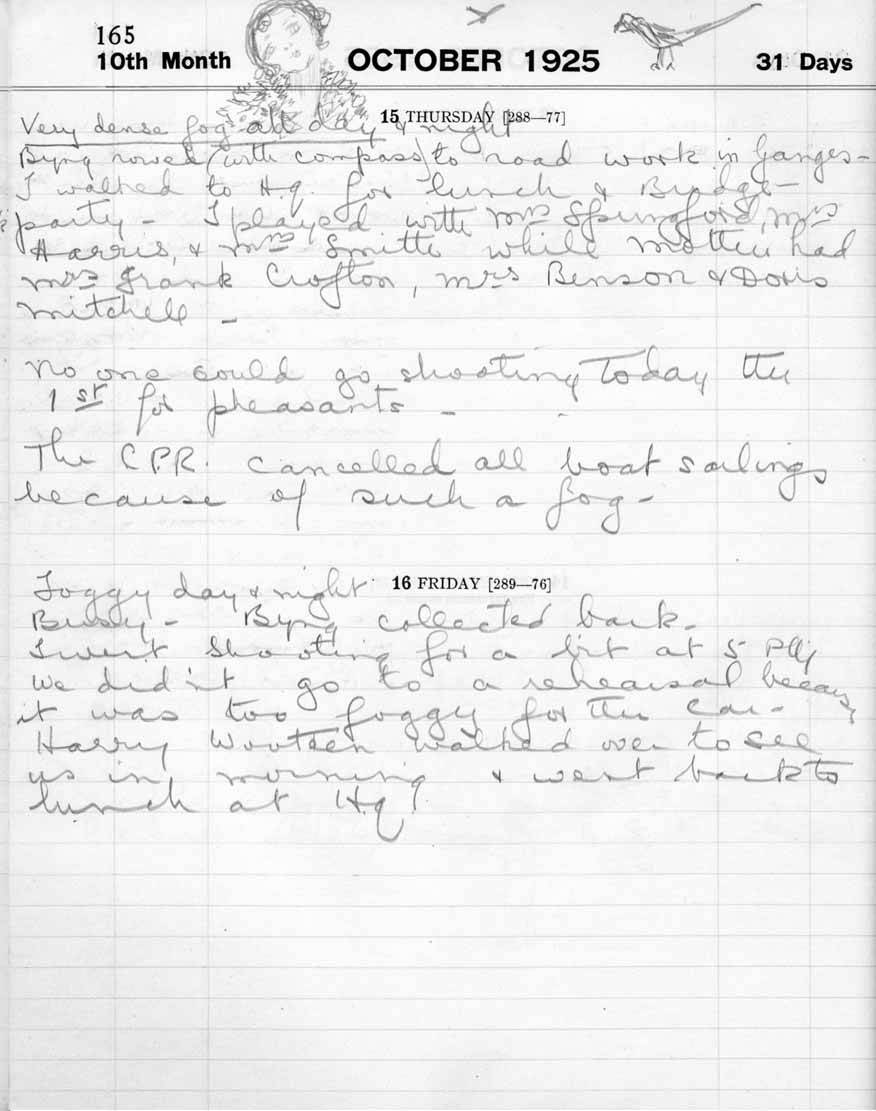 165
10th Month OCTOBER 1925 31 Days
15 THURSDAY [288—77]
Very dense fog all day & night
Byng rowed (with compass) to road work in Ganges -
I walked to Hq. for lunch & Bridge -
party - I played with Mrs Springford, Mrs
Harris, & Mrs Smith while Mother had
Mrs Frank Crofton, Mrs Benson & Doris
Mitchell -
No one could go shooting today the
1st for pheasants -
The C.P.R. cancelled all boat sailings
because of such a fog -
16 FRIDAY [289—76]
Foggy day & night
Busy - Byng collected bark -
I went shooting for a bit at 5 PM
We didn't go to a rehearsal because
it was too foggy for the car -
Harry Wooteen walked over to see
us in morning & went back to
lunch at Hq!